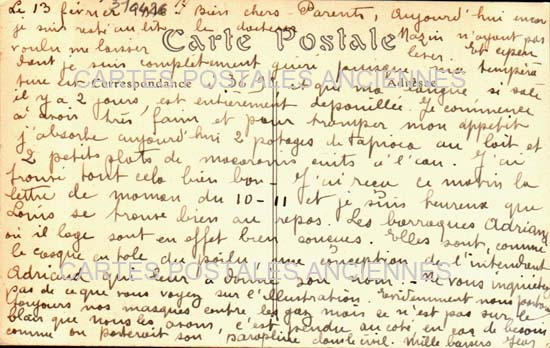 Le 13 février 1916 Bien chers Parents, Aujourd'hui encore
je suis resté au lit, le docteur Mazin n'ayant pas
voulu me laisser lever. Et cepen
Carte Postale
dant je suis complètement guéri puisque ma tempéra
CARTES POSTALES ANCIENNES
Correspondance
Adresse
ture est à 36 et que ma langue si sale
il y a 2 jours, est entièrement dépouillée. Je commence
à avoir très faim et pour tromper mon appétit
j'absorbe aujourd'hui 2 potages de tapioca au lait et
2 petits plats de macaronis cuits à l'eau. J'ai
trouvé tout cela bien bon - J'ai reçu ce matin la
lettre de maman du 10-11 et je suis heureux que
Louis se trouve bien au repos. Les barraques Adrian
où il loge sont en effet bien conçues. Elles sont, comme
le casque en tôle du poilu, une conception de l'intendant
CARTES POSTALES ANCIENNES
Adrian qui leur a donné son nom. - Ne vous inquiétez
pas de ce que vous voyez sur l'illustration. Evidemment nous portons
toujours nos masques contre les gaz mais ce n'est pas sur le
que nous les avons, c'est pendu au côté en cas de besoin
comme on porterait son parapluie dans le civil. Mille baisers Jean